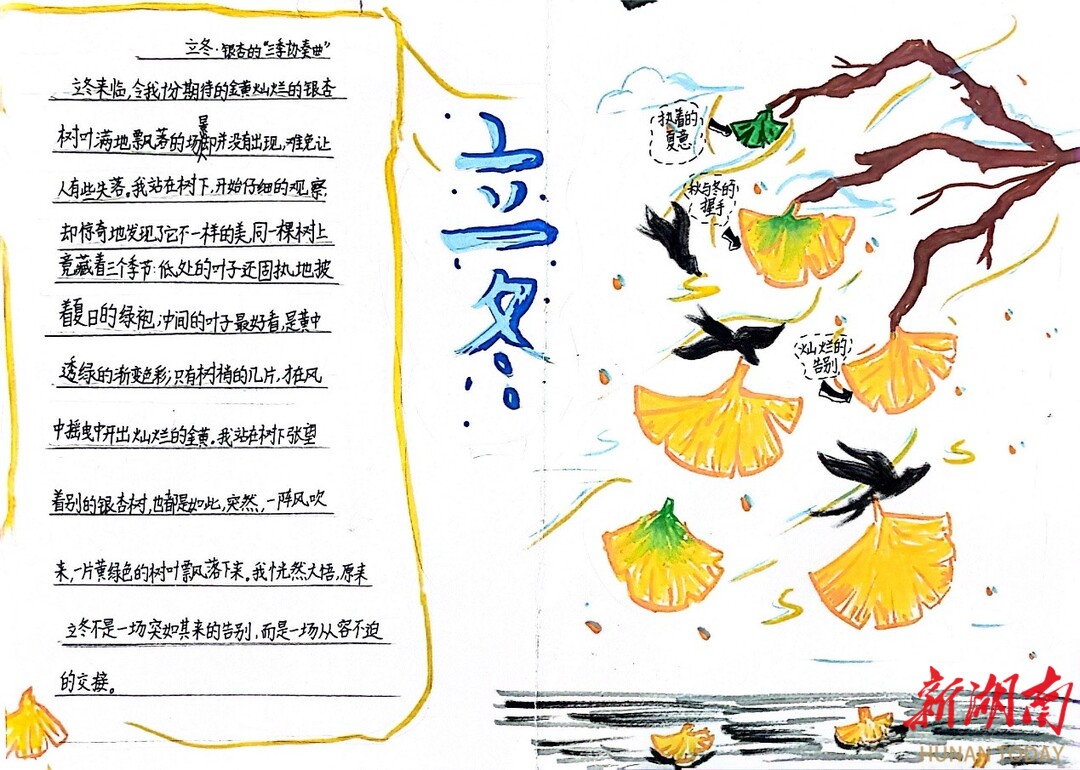 立冬·银杏的“三季协奏曲”
立冬来临，令我十分期待的金黄灿烂的银杏
树叶满地飘落的场景却并没有出现，难免让
人有些失落。我站在树下，开始仔细的观察
却惊奇地发现了它不一样的美，同一棵树上
竟藏着三个季节：低处的叶子还固执地披
着夏日的绿袍；中间的叶子最好看，是黄中
透绿的渐变色彩；只有树梢的几片，才在风
中摇曳中开出灿烂的金黄。我站在树下张望
着别的银杏树，也都是如此，突然，一阵风吹
来，一片黄绿色的树叶飘落下来。我恍然大悟，原来
立冬不是一场突如其来的告别，而是一场从容不迫
的交接。
立冬
执着的
夏意
秋与冬的
握手
灿烂的
告别
新湖南
HUNAN TODAY